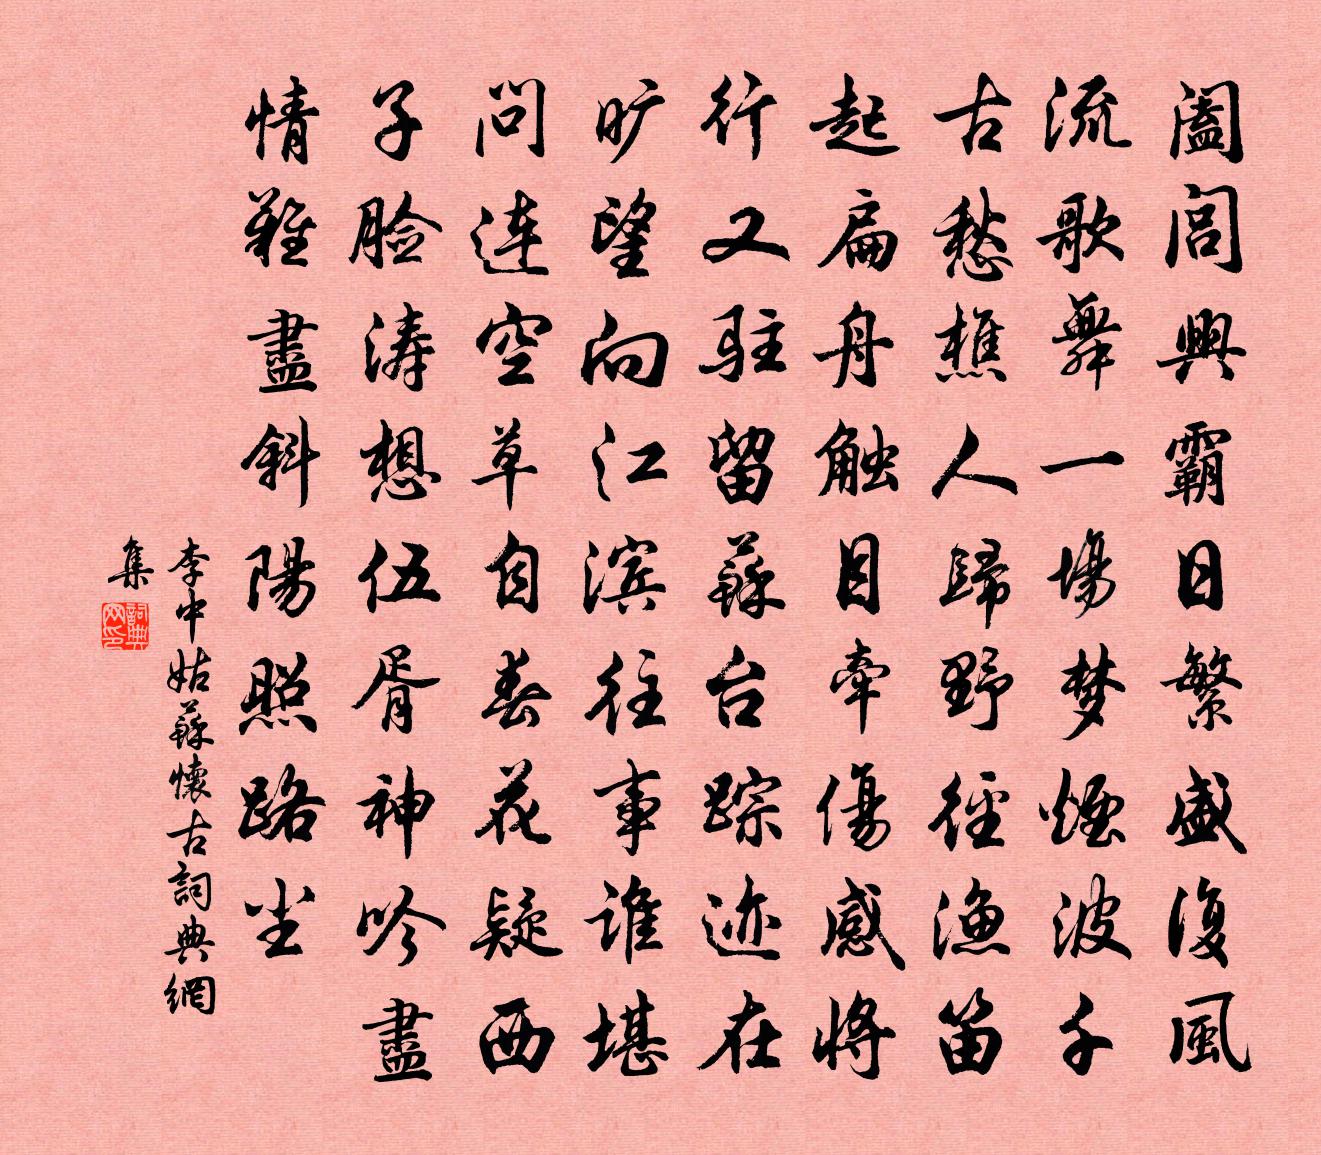 阖閭興霸日繁盛復風
流歌舞一場梦煙波千
古愁樵人歸野徑漁笛
起扁舟触目牽傷感將
行又駐留蘇台踪迹在
旷望向江滨往事谁堪
问連空草自春花疑西
子脸涛想伍胥神吟盡
情難盡斜陽照路尘
李中姑蘇懷古詞典網
集
詞典网印